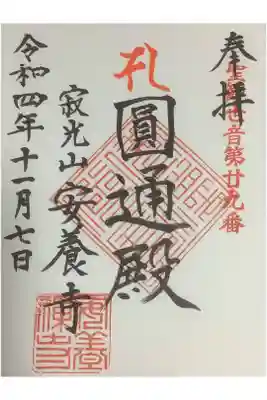 奉拝
聖観世音第廿九番
札
圓通殿
寂光山安養寺
令和四年十一月七日